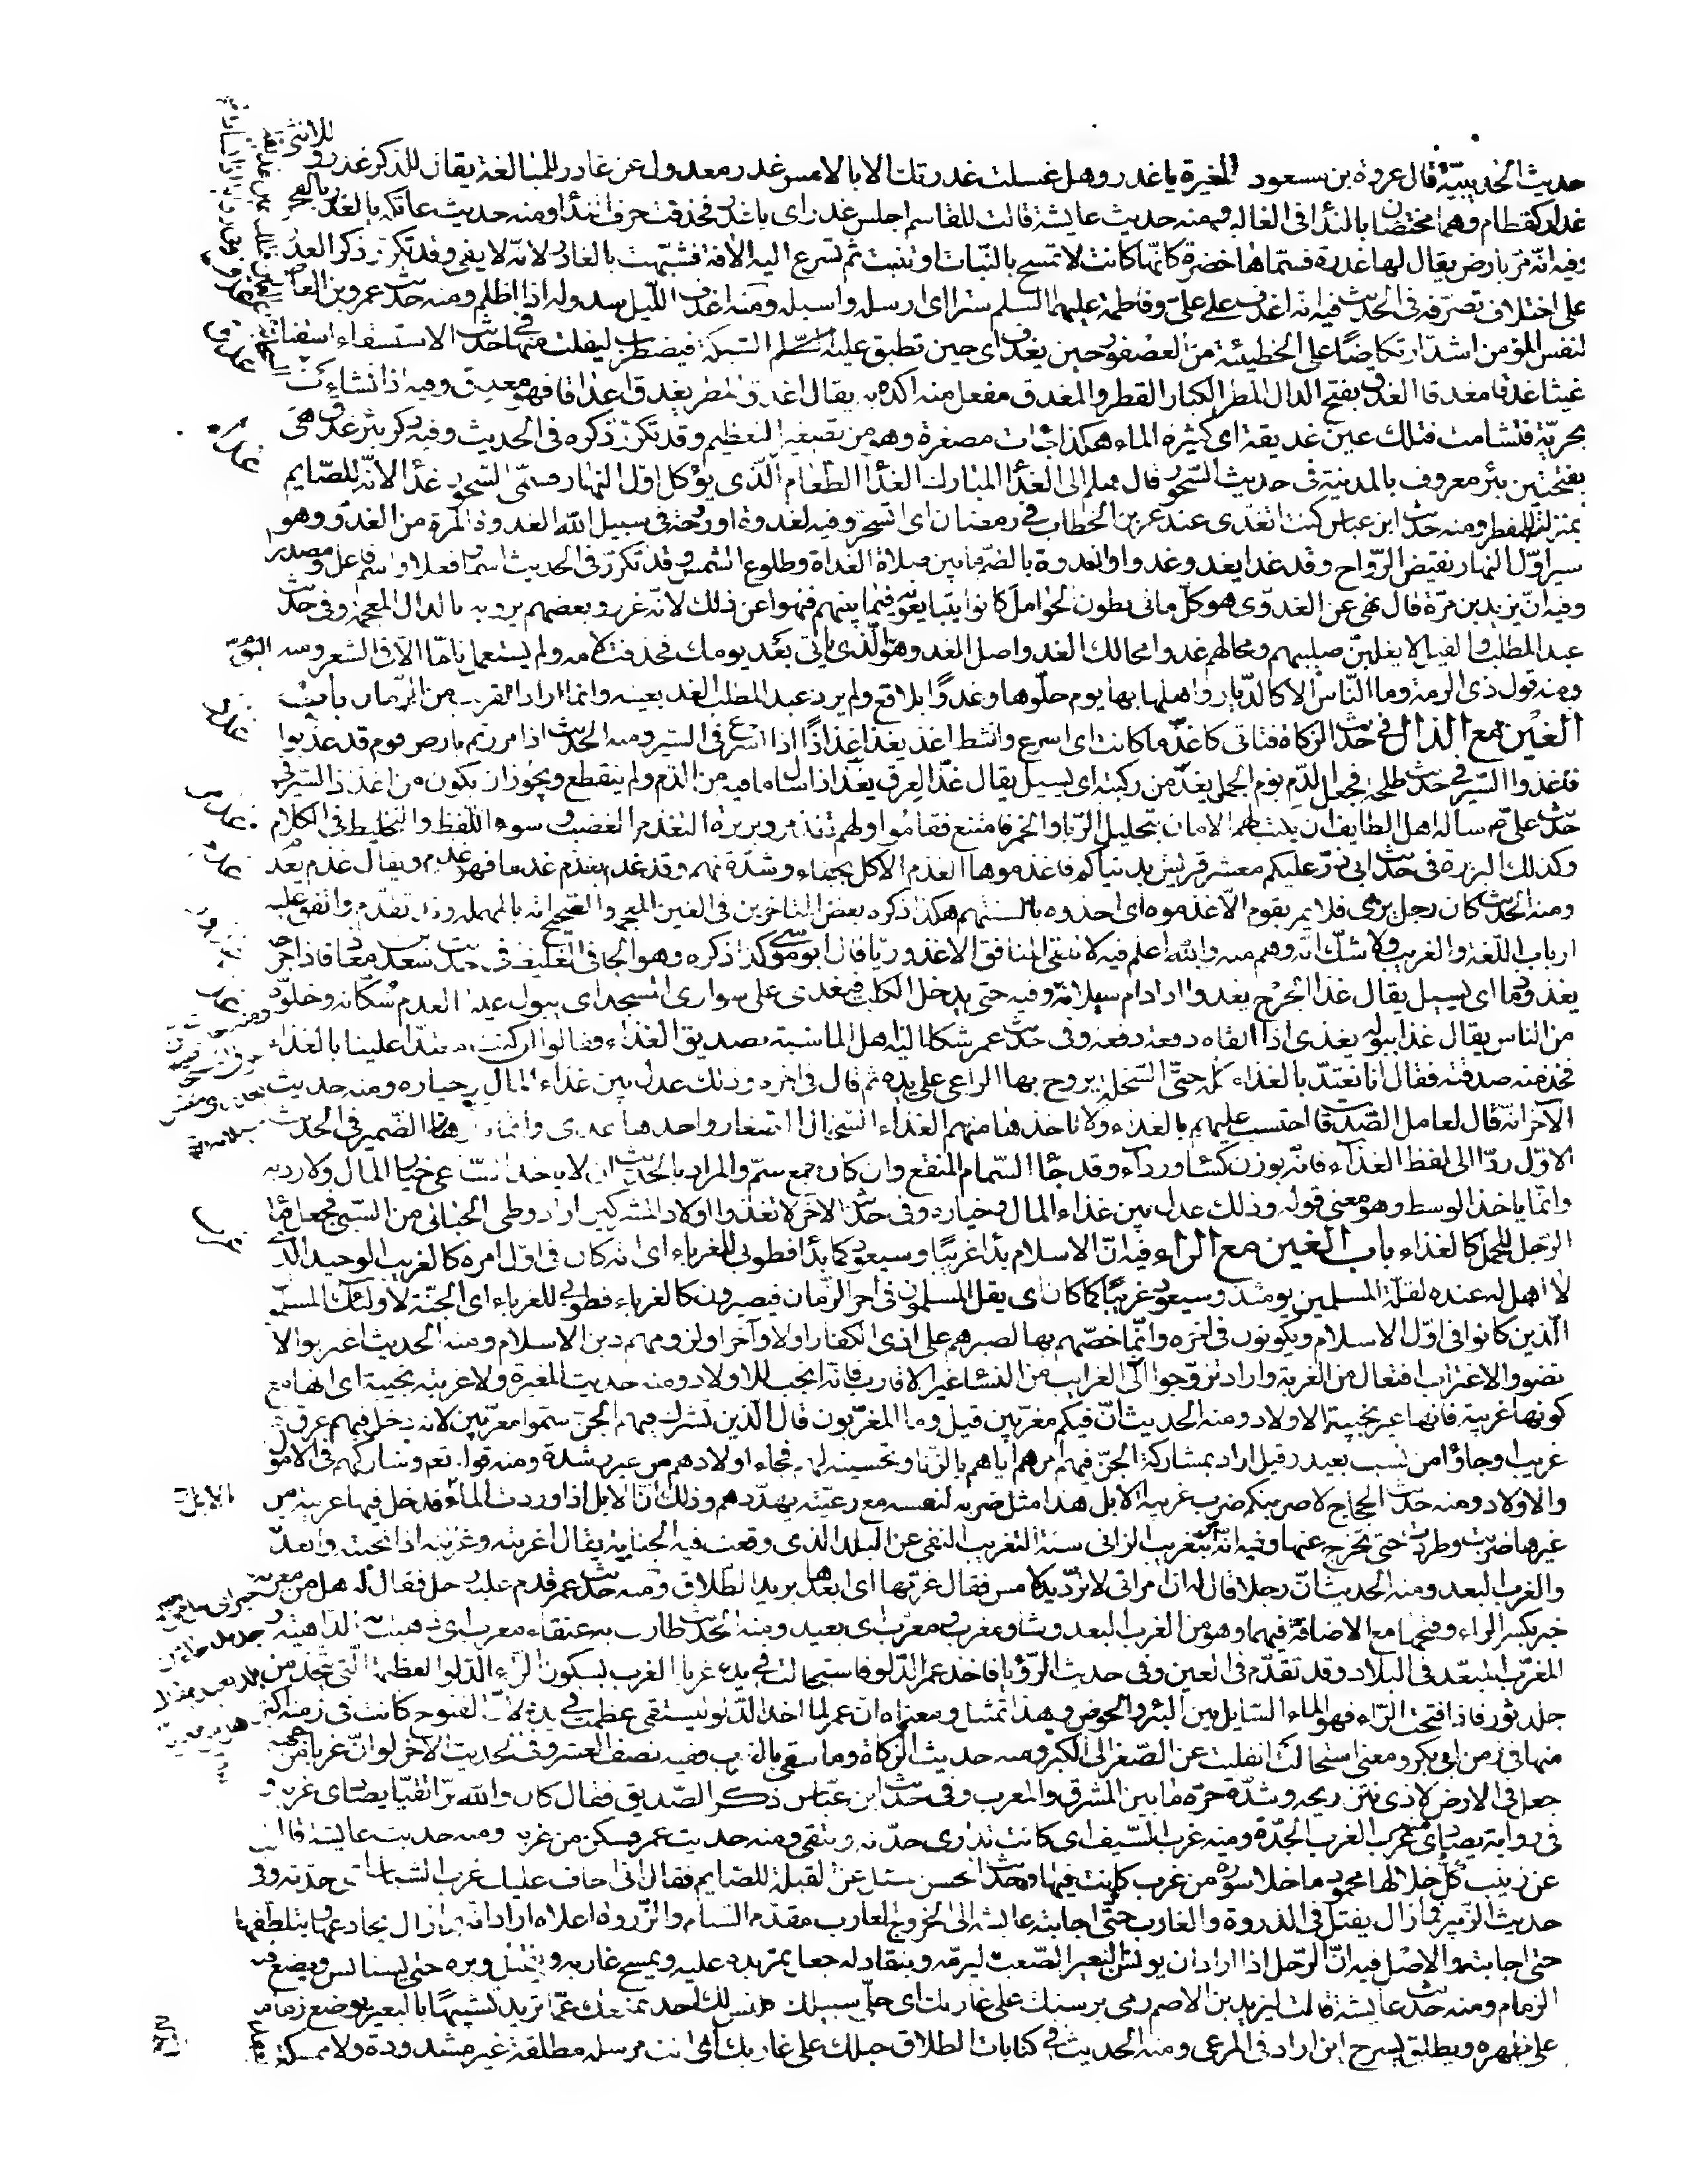 حديث الحديبية قال عروة بن مسعود للمغيرة يا غدر وهل غسلت غدرتك الا بالامس غدر معدول عن غادر للمبالغة يقال للذكر غدر وللانثى
غدار كقطام وهما مختصان بالندا فى الغالب ومنه حديث عايشة قالت للقاسم اجلس غدر اى يا غدر فحذفت حرف الندا ومنه حديث عاتكة يا لغدر يا لفجر
وفيه انه مر بارض يقال لها غدرة فسماها خضرة كانها كانت لا تسمح بالنبات او تنبت ثم تسرع اليه الافة فشبهت بالغادر لانه لا يفى وقد تكرر ذكر الغدر
على اختلاف تصرفه فى الحديث فيه انه اغدف على على وفاطمة عليهما السلم سترا اى ارسله واسبله ومنه اغدف الليل سدوله اذا اظلم ومنه حديث عمرو بن العاص
لنفس المؤمن اشد ارتكاضا على الخطيئة من العصفور حين يغدف اى حين تطبق عليه الشبكة فيضطرب ليفلت منها فى حديث الاستسقاء اسقنا
غيثا غدقا مغدقا الغدق بفتح الدال المطر الكبار القطر والمغدق مفعل منه اكده به يقال اغدق المطر يغدق اغداقا فهو مغدق وفيه اذا نشاءت
بحرية فتشامت فتلك عين غديقة اى كثيرة الماء هكذا جات مصغرة وهو من تصغير التعظيم وقد تكرر ذكره فى الحديث وفيه ذكر بئر غدق هى
بفتحتين بئر معروف بالمدينة فى حديث السحور قال هلم الى الغدا المبارك الغدا الطعام الذى يؤكل اول النهار فسمى السحور غدا لانه للصايم
بمنزلته للمفطر ومنه حديث ابن عباس كنت اتغدى عند عمر بن الخطاب فى رمضان اى اتسحر وفيه لغدوة او روحة فى سبيل الله الغدوة المرة من الغدو وهو
سير اول النهار نقيض الرواح وقد غدا يغدو غدوا والغدوة بالضم ما بين صلاة الغداة وطلوع الشمس وقد تكرر فى الحديث اسما وفعلا واسم فاعل ومصدر
وفيه ان يزيد بن مرة قال نهى عن الغدوى هو كل ما فى بطون الحوامل كانوا يتبايعونه فيما بينهم فنهوا عن ذلك لانه غرر وبعضهم يرويه بالذال المعجمة وفى حديث
عبد المطلب والفيل لا يغلبن صليبهم ومحالهم غدوا محالك الغدو اصل الغد وهو الذى ياتى بعد يومك فحذفت لامه ولم يستعمل تاما الا فى الشعر ومنه
ومنه قول ذى الرمة وما الناس الا كالديار واهلها بها يوم حلوها وغدوا بلاقع ولم يرد عبد المطلب الغد بعينه وانما اراد القريب من الزمان باب
الغين مع الذال فى حديث الزكاة فتاتى كاغذ ما كانت اى اسرع وانشط اغذ يغذ اغذاذا اذا اسرع فى السير ومنه الحديث اذا مررتم بارض قوم قد عذبوا
فاغذوا السير فى حديث طلحة فجعل الدم يوم الجمل يغذ من ركبته اى يسيل يقال غذ العرق يغذ اذا سال ما فيه من الدم ولم ينقطع ويجوز ان يكون من اغذاذ السير فى
حديث على ع م ساله اهل الطايف ان يكتب لهم الامان بتحليل الربا والخمر فامتنع فقاموا ولهم تغذمر وبربرة التغذمر الغضب وسوء اللفظ والتخليط فى الكلام
وكذلك البربرة فى حديث ابى ذر عليكم معشر قريش بدنياكم فاغذموها الغذم الاكل بجفاء وشدة نهم وقد غذم يغذم غذما فهو غذم ويقال غذم يغذم
ومنه الحديث كان رجل يرمى فلا يمر بقوم الا غذموه اى اخذوه بالسنتهم هكذا ذكره بعض المتاخرين فى الغين المعجمة والصحيح انه بالمهملة وقد تقدم واتفق عليه
ارباب اللغة والغريب ولا شك انه وهم منه والله اعلم فيه لا تلقى المنافق الا غذوريا قال ابو موسى كذا ذكره وهو الجافى الغليظ فى حديث سعد بن معاذ فاذا جرحه
يغذو دما اى يسيل يقال غذا الجرح يغذو اذا دام سيلانه وفيه حتى يدخل الكلب فيغذى على سوارى المسجد اى يبول عليها لعدم سكانه وخلوه
من الناس يقال غذا ببوله يغذى اذا القاه دفعة دفعة وفى حديث عمر شكا اليه اهل الماشية تصديق الغذاء وقالوا ان كنت معتدا علينا بالغذاء
فخذ منه صدقته فقال انا نعتد بالغذاء كله حتى السخلة يروح بها الراعى على يده ثم قال فى اخره وذلك عدل بين غذاء المال وخياره ومنه حديث
الاخر انه قال لعامل الصدقات احتسب عليهم بالغذاء ولا تاخذها منهم الغذاء السخال الصغار واحدها غذى وانما ذكر الضمير فى الحديث
الاول ردا الى لفظ الغذاء فانه بوزن كساء ورداء وقد جا السمام المنقع وان كان جمع سم والمراد بالحديث ان لا ياخذ الساعى خيار المال ولا رديه
وانما ياخذ الوسط وهو معنى قوله وذلك عدل بين غذاء المال وخياره وفى حديث الاخر لا تغذوا اولاد المشركين اراد وطى الحبالى من السبى فجعل ماء
الرجل للحمل كالغذاء باب الغين مع الراء فيه ان الاسلام بدا غريبا وسيعود كما بدا فطوبى للغرباء اى انه كان فى اول امره كالغريب الوحيد الذى
لا اهل له عنده لقلة المسلمين يومئذ وسيعود غريبا كما كان اى يقل المسلمون فى اخر الزمان فيصيرون كالغرباء فطوبى للغرباء اى الجنة لاولئك المسلمين
الذين كانوا فى اول الاسلام ويكونون فى اخره وانما خصهم بها لصبرهم على اذى الكفار اولا واخرا ولزومهم دين الاسلام ومنه الحديث اغربوا لا
تضووا الاغتراب افتعال من الغربة واراد تزوجوا الى الغرايب من النساء غير الاقارب فانه انجب للاولاد ومنه حديث المغيرة ولا غريبة نجيبة اى انها مع
كونها غريبة فانها غير نجيبة الاولاد ومنه الحديث ان فيكم مغربين قيل وما المغربون قال الذين تشرك فيهم الجن سموا مغربين لانه دخل فيهم عرق
غريب او جاؤا من نسب بعيد وقيل اراد بمشاركة الجن فيهم امرهم اياهم بالزنا وتحسينه لهم فجاء اولادهم من غير رشدة ومنه قوله تعالى وشاركهم فى الاموال
والاولاد ومنه حديث الحجاج لاضربنكم ضرب غريبة الابل هذا مثل ضربه لنفسه مع رعيته يهددهم وذلك ان الابل اذا وردت الماء فدخل فيها غريبة من
غيرها ضربت وطردت حتى تخرج عنها وفيه انه امر بتغريب الزانى سنة التغريب النفى عن البلد الذى وقعت فيه الجناية يقال اغربته وغربته اذا نحيته وابعدته
والغرب البعد ومنه الحديث ان رجلا قال له ان امراتى لا ترد يد لامس فقال غربها اى ابعدها يريد الطلاق ومنه حديث عمر قدم عليه رجل فقال له هل من مغربة
خبر بكسر الراء وفتحها مع الاضافة فيهما وهو من الغرب البعد وشاو مغرب ومغرب اى بعيد ومنه الحديث طارت به عنقاء مغرب اى ذهبت به الداهية
المغرب المبعد فى البلاد وقد تقدم فى العين وفى حديث الرؤيا فاخذ عمر الدلو فاستحالت فى يده غربا الغرب بسكون الراء الدلو العظيمة التى تتخذ من
جلد ثور فاذا فتحت الراء فهو الماء السايل بين البئر والحوض وهذا تمثيل ومعناه ان عمر لما اخذ الدلو ليستقى عظمت فى يده لان الفتوح كانت فى زمنه اكثر
منها فى زمن ابى بكر ومعنى استحالت انقلبت عن الصغر الى الكبر ومنه حديث الزكاة وما سقى بالغرب ففيه نصف العشر وفى الحديث الاخر لو ان غربا من جهنم
جعل فى الارض لاذى نتن ريحه وشدة حره ما بين المشرق والمغرب وفى حديث ابن عباس ذكر الصديق فقال كان والله برا تقيا يصادى غربه و
فى رواية يصادى منه غرب الغرب الحدة ومنه غرب السيف اى كانت تدارى حدته وتتقى ومنه حديث عمر فسكن من غربه ومنه حديث عايشة قالت
عن زينب كل خلالها محمود ما خلا سورة من غرب كانت فيها وحديث الحسن سئل عن القبلة للصايم فقال انى اخاف عليك غرب الشباب اى حدته وفى
حديث الزبير فما زال يفتل فى الذروة والغارب حتى اجابته عايشة الى الخروج الغارب مقدم السنام والذروة اعلاه اراد انه ما زال يخادعها ويتلطفها
حتى اجابته والاصل فيه ان الرجل اذا اراد ان يؤنس البعير الصعب ليزمه وينقاد له جعل يمر يده عليه ويمسح غاربه ويفتل وبره حتى يستانس ويضع فيه
الزمام ومنه حديث عايشة قالت ليزيد بن الاصم رمى برسنك على غاربك اى خلى سبيلك فليس لك احد يمنعك عما تريد تشبيها بالبعير يوضع زمامه
على ظهره ويطلق يسرح اين اراد فى المرعى ومنه الحديث فى كنايات الطلاق حبلك على غاربك اى انت مرسلة مطلقة غير مشدودة ولا ممسكة